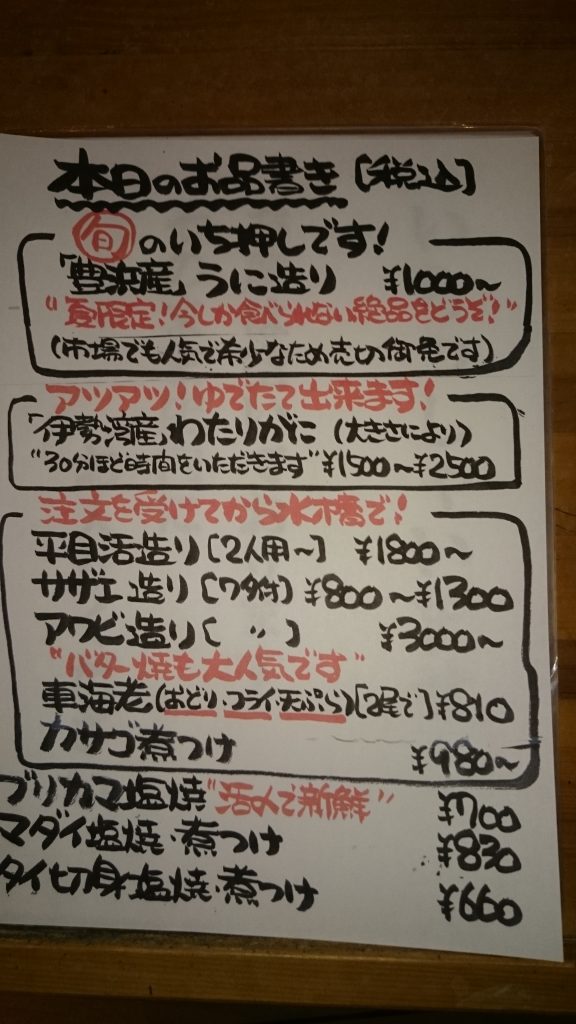 本日のお品書き [税込]
旬のいち押しです!
「豊浜産」うに造り ¥1000~
"夏限定!今しか食べられない絶品をどうぞ!"
(市場でも人気で希少なため売切御免です)
アツアツ!ゆでたて出来ます!
「伊勢湾産」わたりがに (大きさにより)
"30分ほど時間をいただきます" ¥1500~¥2500
注文を受けてから水槽で!
平目活造り[2人用~] ¥1800~
サザエ造り[ワタ付] ¥800~¥1300
アワビ造り[ 〃 ] ¥3000~
"バター焼も大人気です"
車海老(おどり・フライ・天ぷら)[2尾で] ¥810
カサゴ煮つけ ¥980~
ブリカマ塩焼 "活〆で新鮮" ¥700
マダイ塩焼・煮つけ ¥830
タイ切身塩焼・煮つけ ¥660